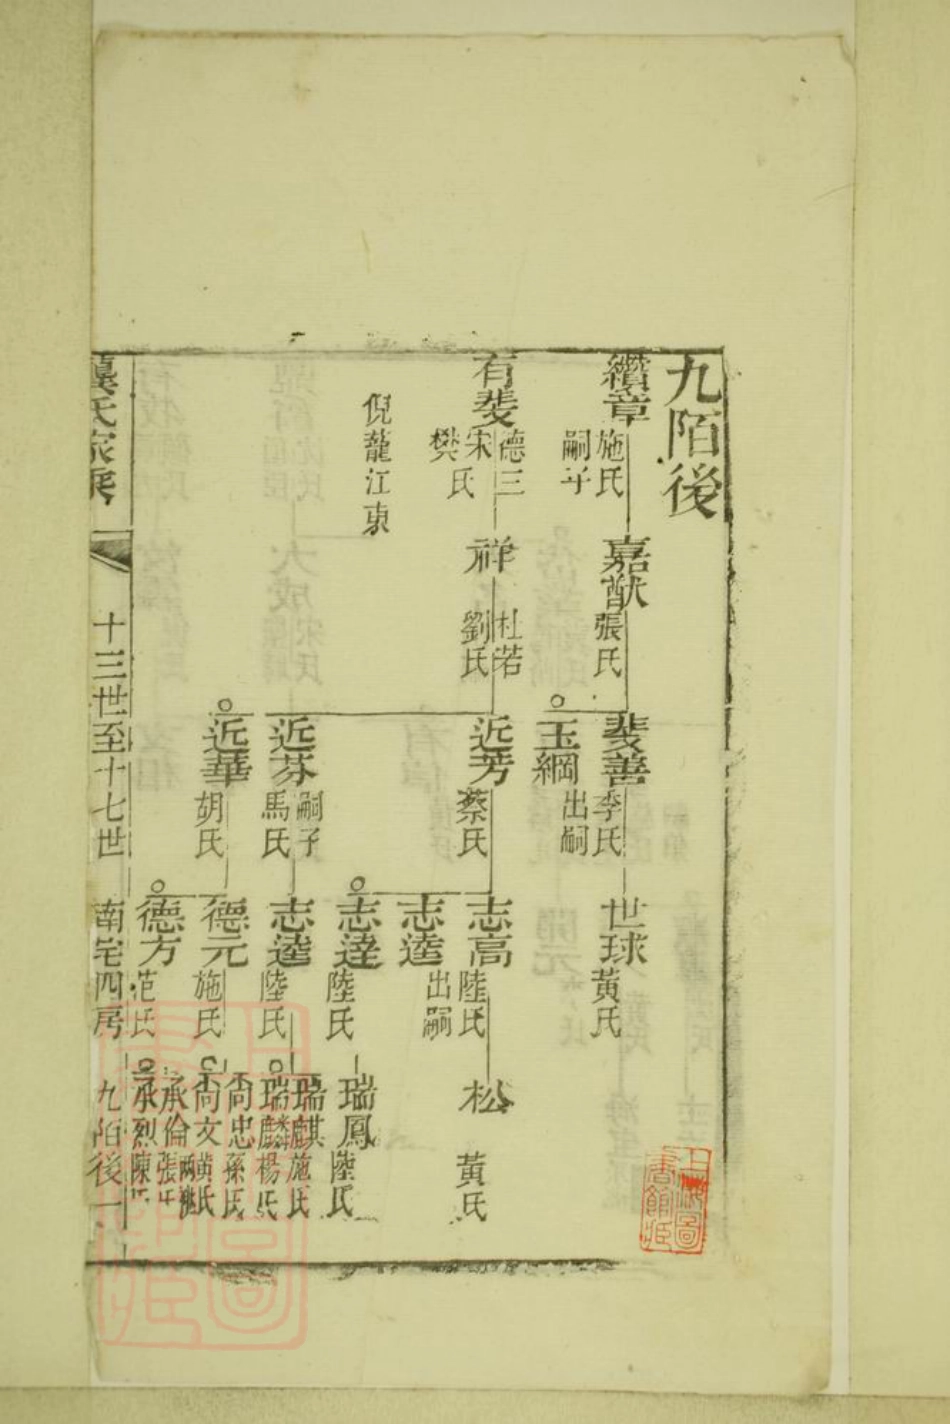 九陌後
纘章 施氏 嗣子
嘉猷 張氏
斐善 李氏
世球 黃氏
玉綱 出嗣
有斐 德三 宋氏 樊
祥 杜若 劉氏
近芳 蔡氏
志高 陸氏
松 黃氏
志逵 出嗣
倪蘢江東
志達 陸氏
瑞鳳 陸氏
近芬 嗣子 馬氏
志逵 陸氏
瑞麒 施氏
瑞麟 楊氏
近華 胡氏
德元 施氏
尚忠 孫氏
尚文 黃氏
德方 范氏
承倫 張氏
承烈 陳氏
龔氏家乘
十三世至十七世
南宅四房
九陌後一
上海圖書館藏